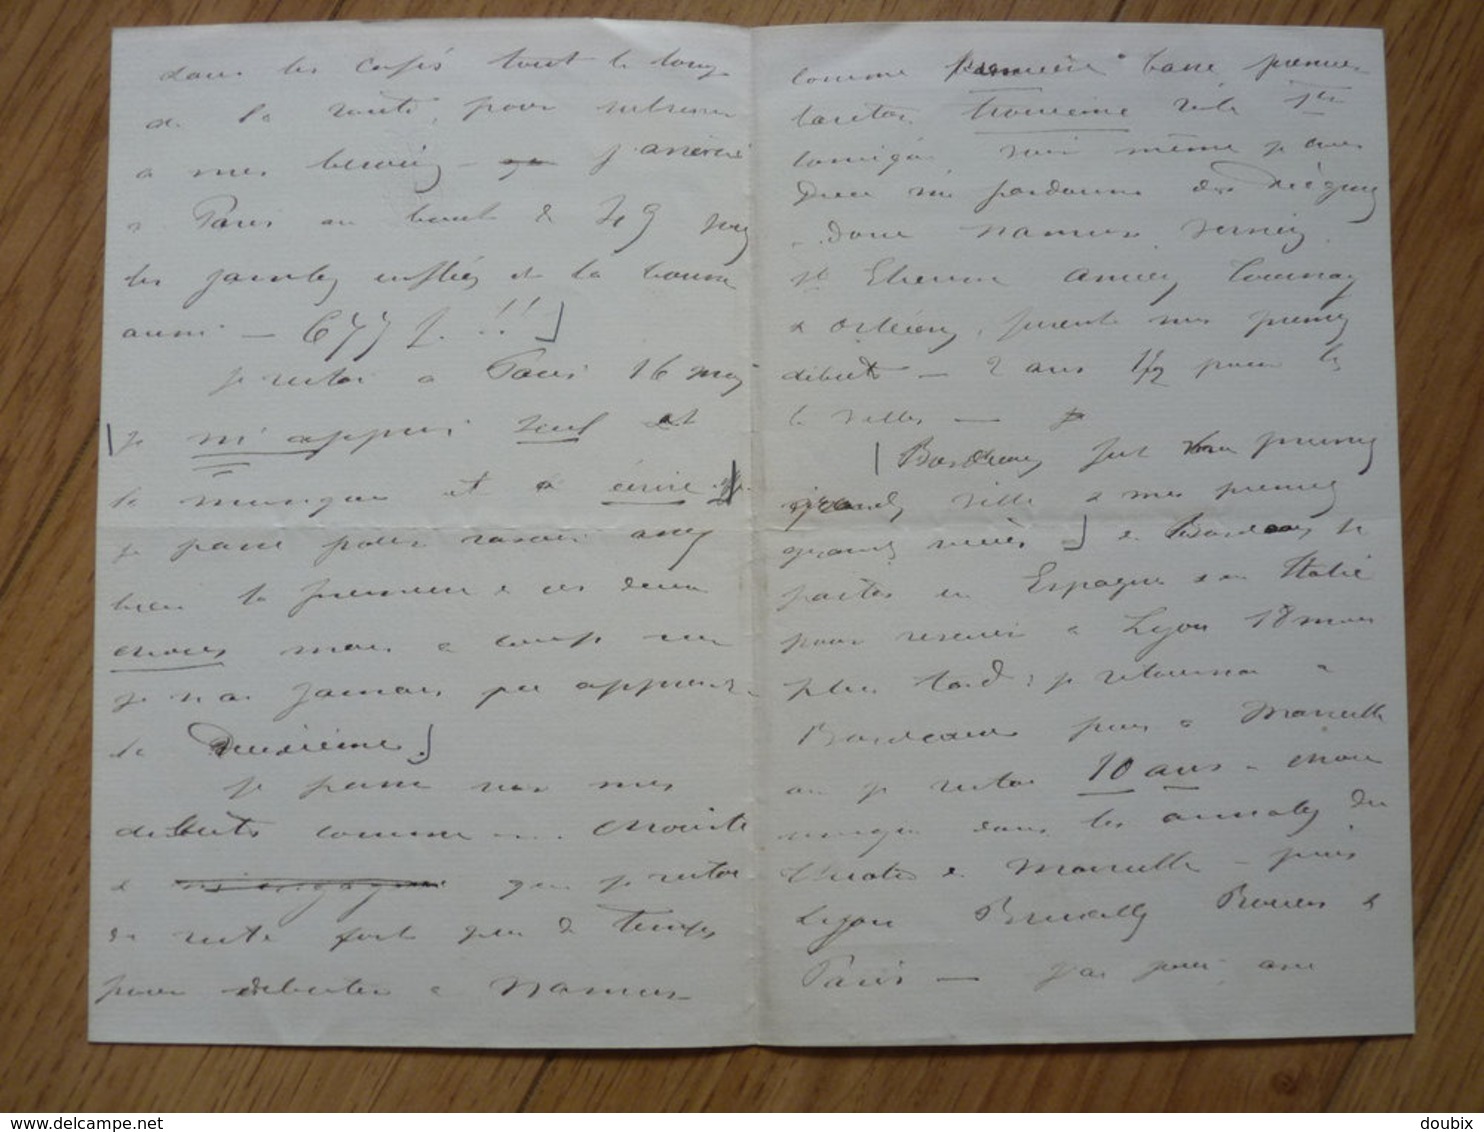 dans les cafés tout le long
de la route, pour subvenir
a mes besoins – j'arrivai
a Paris au bout de 49 jours
les jambes enflées et la bourse
aussi — 677 f. !!]
je restai a Paris 16 mois
je m'appris seul et
la musique et a écrire
je passe pour savoir assez
bien la premiere de ces deux
choses mais a coup sur
je n'ai jamais pu apprendre
la Deuxième]
je passe sur mes
debuts comme choriste
que je restai
du reste fort peu de temps
pour debuter a Namur
comme première basse, premier
baryton, troisième role, 1er
comique voir même je crois
Dieu me pardonne des Duègnes
donc Namur, Verviers,
St Etienne Annecy Tournay
& Orléans, furent mes premiers
débuts — 2 ans 1/2 pour les
6 villes —
Bordeaux fut ma première
grande ville & mes premiers
grands succès] de Bordeaux je
partis en Espagne & en Italie
pour revenir a Lyon 18 mois
plus tard ; je retournai a
Bordeaux puis a Marseille
ou je restai 10 ans – chose
unique dans les annales du
théatre de Marseille – puis
Lyon Bruxelles Rouen &
Paris —
www.delcampe.net
doubix